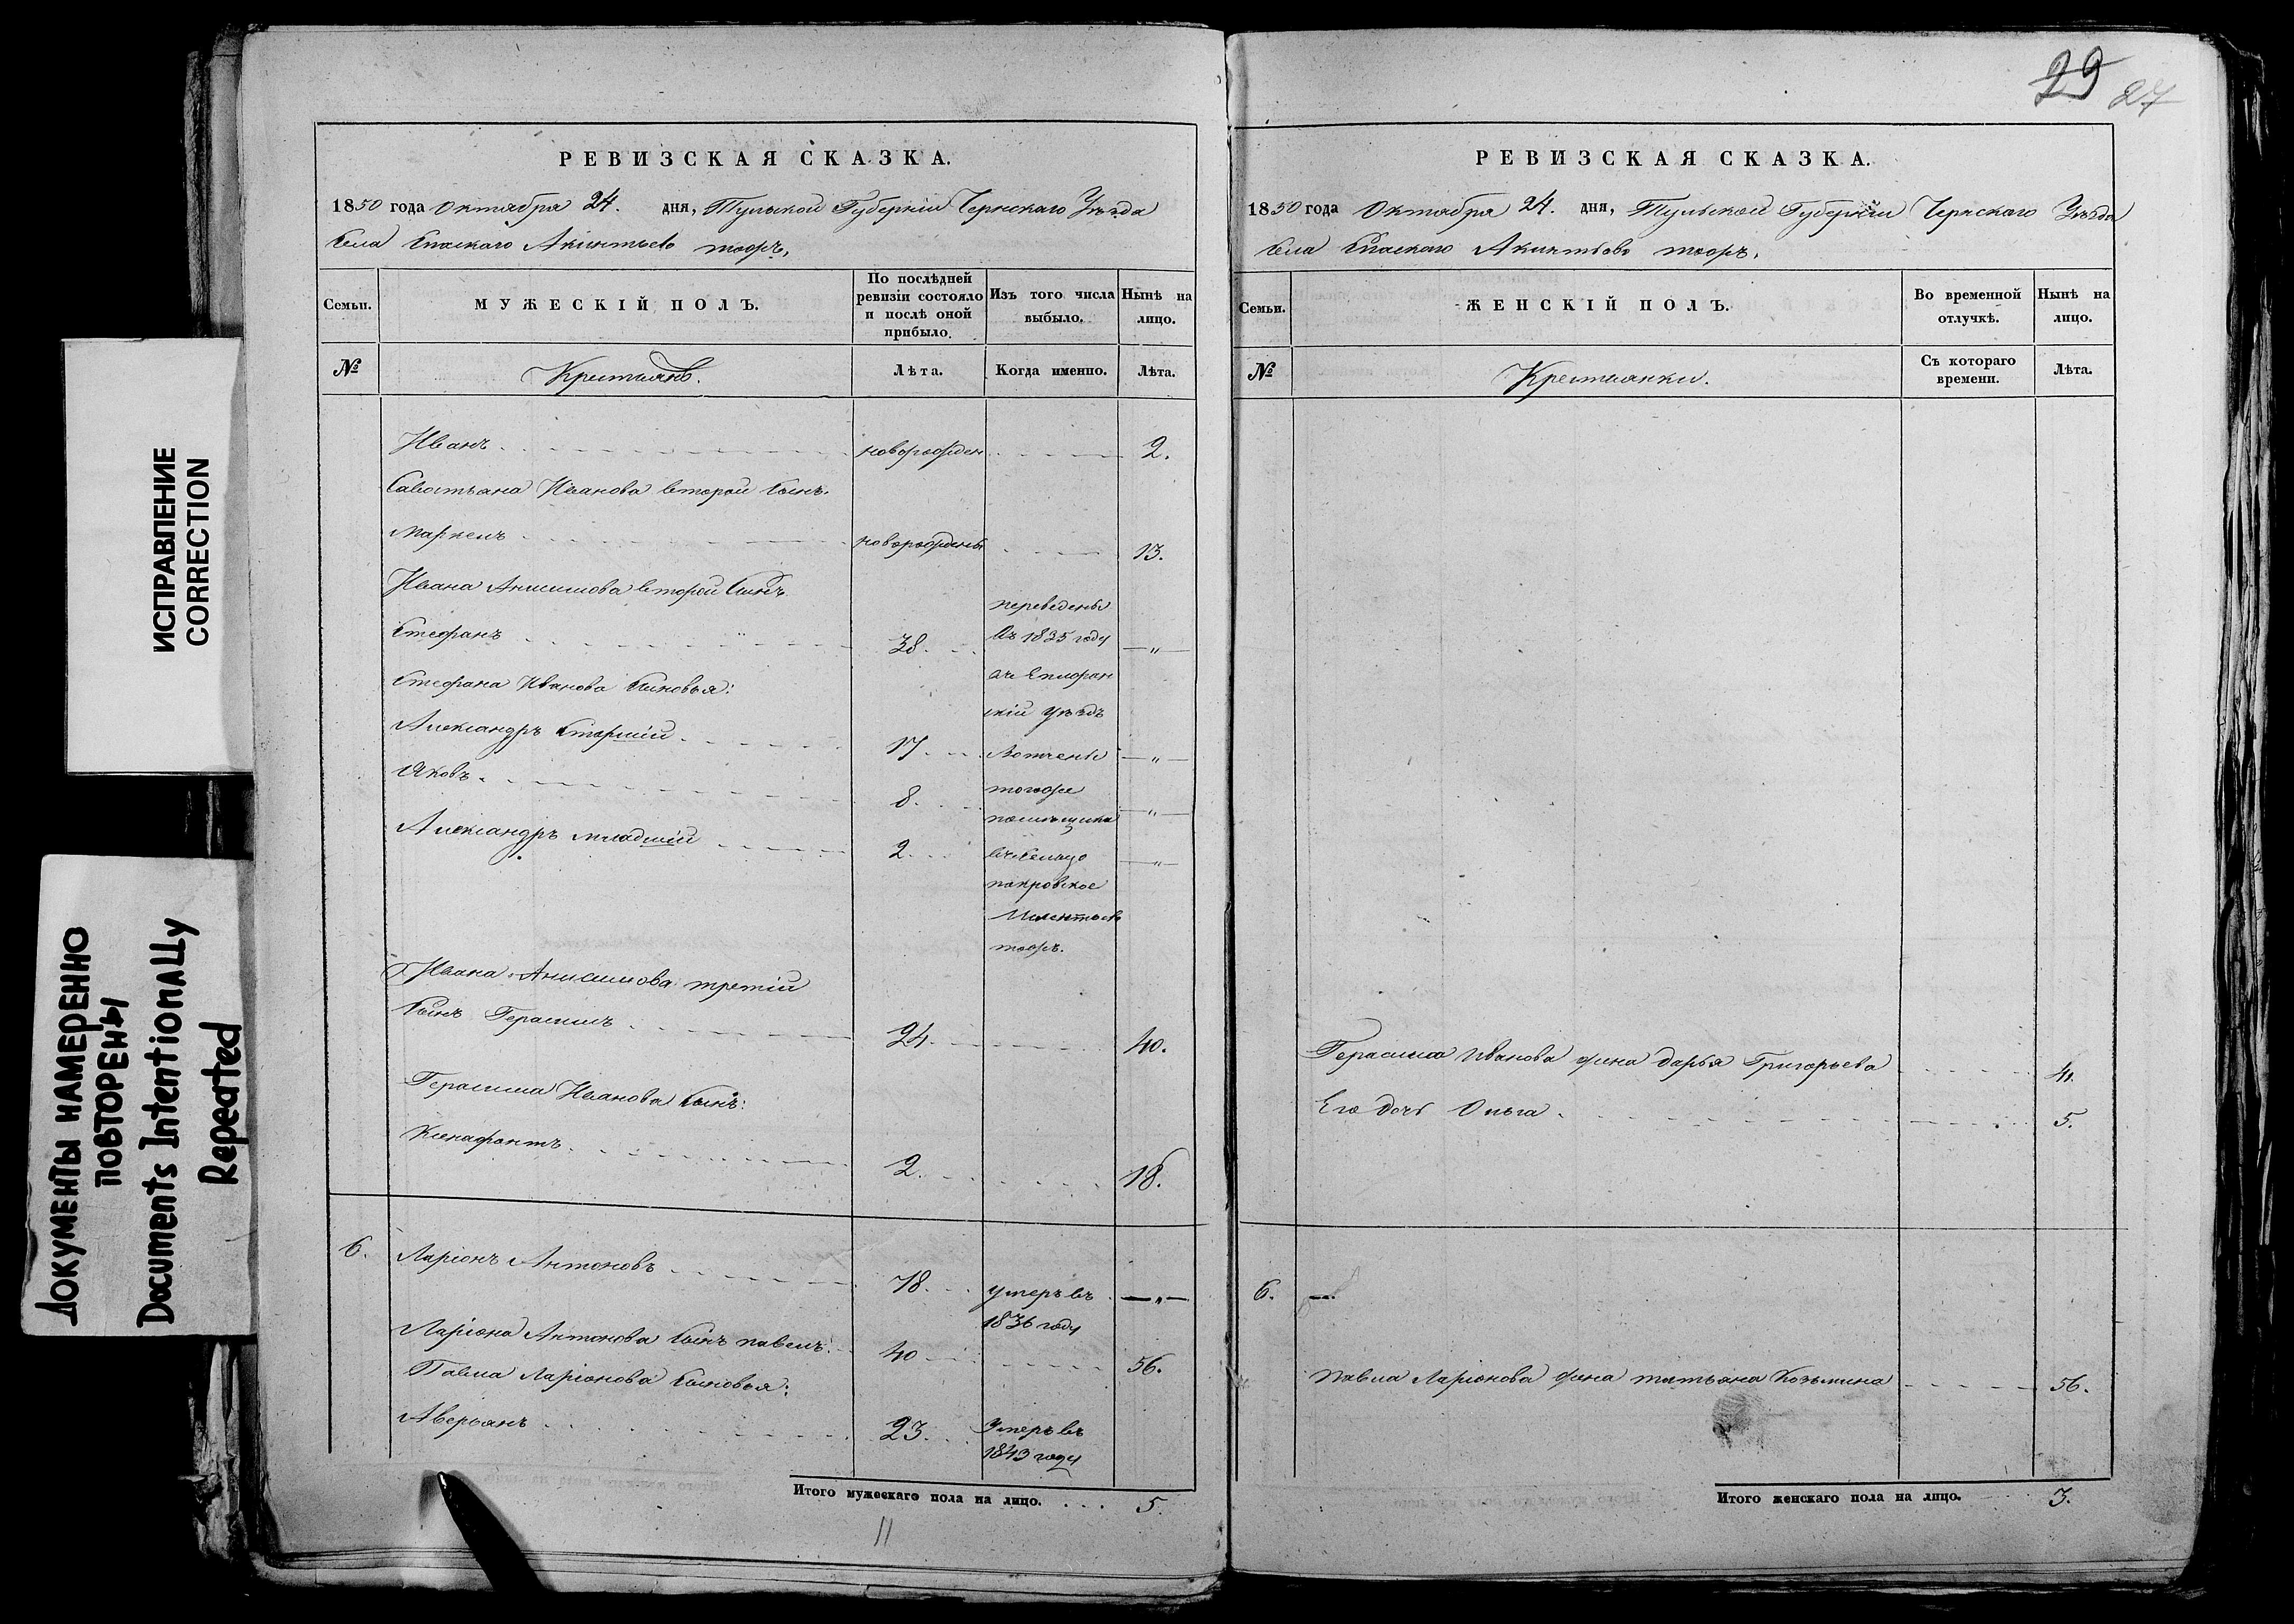 29 27
РЕВИЗСКАЯ СКАЗКА.
1850 года Октября 24. дня, Тульской Губерніи Чернскаго Уѣзда
Села Спаскаго Акинтьево тожъ,
Семьи. МУЖЕСКІЙ ПОЛЪ. По послѣдней ревизіи состояло и послѣ оной прибыло. Изъ того числа выбыло. Нынѣ на лицо.
№ Крестьянъ. Лѣта. Когда именно. Лѣта.
Иванъ новорожден 2.
Савостьяна Иванова второй сынъ.
Маркелъ новорожденъ 13.
Ивана Анисимова второй сынъ
Стефанъ 38. переведены
въ 1835 году —"—
Стефана Иванова сыновья: въ Епифан
скій уѣздъ
Александръ старшій 17. вотчены —"—
Яковъ 8. тогоже
помѣщика —"—
Александръ младшій 2. въ сельцо —"—
покровское
тожъ.
Ивана Анисимова третій
сынъ Герасимъ 24. 40.
Герасима Иванова сынъ:
Ксенафонтъ 2. 18.
6. Ларіонъ Антоновъ 78. умеръ въ —"—
1836 году
Ларіона Антонова сынъ павелъ. 40 56.
Павла Ларіонова сыновья:
Аверьянъ 23. Умеръ въ
1843 году
Итого мужескаго пола на лицо. 5.
11
РЕВИЗСКАЯ СКАЗКА.
1850 года Октября 24. дня, Тульской Губерніи Чернскаго Уѣзда
Села Спаскаго Акинтьево тожъ.
Семьи. ЖЕНСКІЙ ПОЛЪ. Во временной отлучкѣ. Нынѣ на лицо.
№ Крестьянки. Съ котораго времени. Лѣта.
Герасима Иванова жена дарья Григорьева 41.
Его дочь Ольга 5.
6. —
Павла Ларіонова жена татьяна Козьмина 56.
Итого женскаго пола на лицо. 3.
ИСПРАВЛЕНИЕ
CORRECTION
ДОКУМЕНТЫ НАМЕРЕННО
ПОВТОРЕНЫ
Documents Intentionally
Repeated